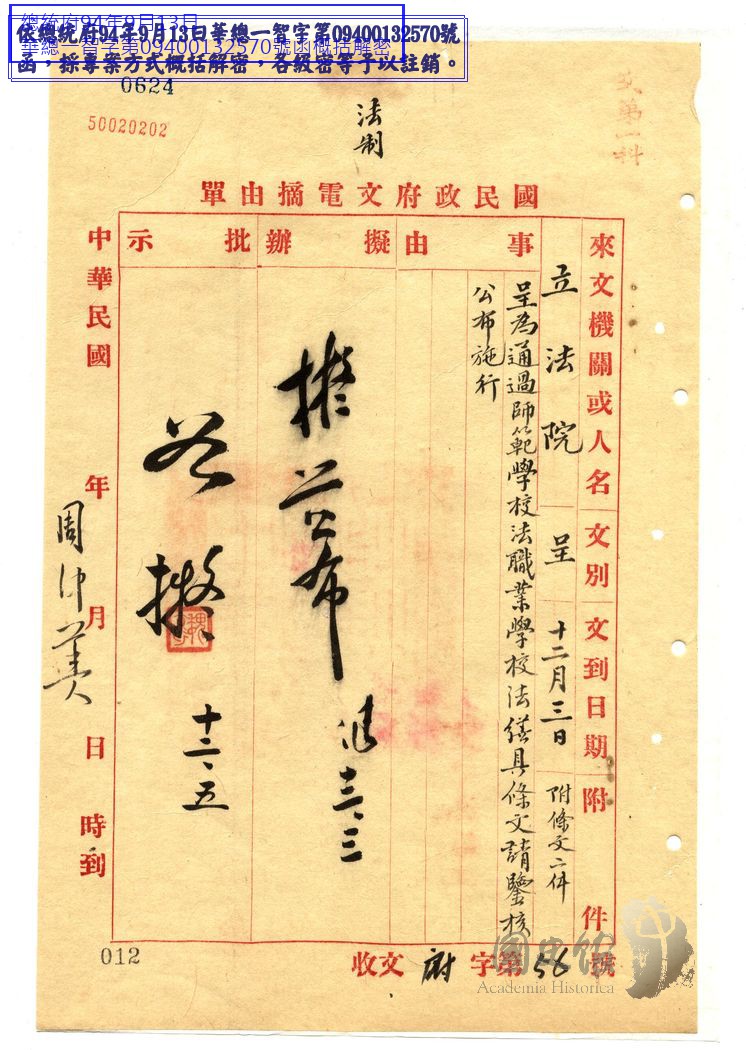 總統府94年9月13日
華總一智字第09400132570號函概括解密
依總統府94年9月13日華總一智字第09400132570號
函，採專案方式概括解密，各級密等予以註銷。
0624
50020202
文第一科
法制
國民政府文電摘由單
來文機關或人名
立法院
文別
呈
文到日期
十二月三日
附件
附條文二件
事由
呈為通過師範學校法職業學校法繕具條文請鑒核
公布施行
擬辦
擬公布
十二、三
批示
如擬
十二、五
中華民國 年 月 日 時到
周仲美
收文 府 字第 56 號
012
國史館
Academia Historica